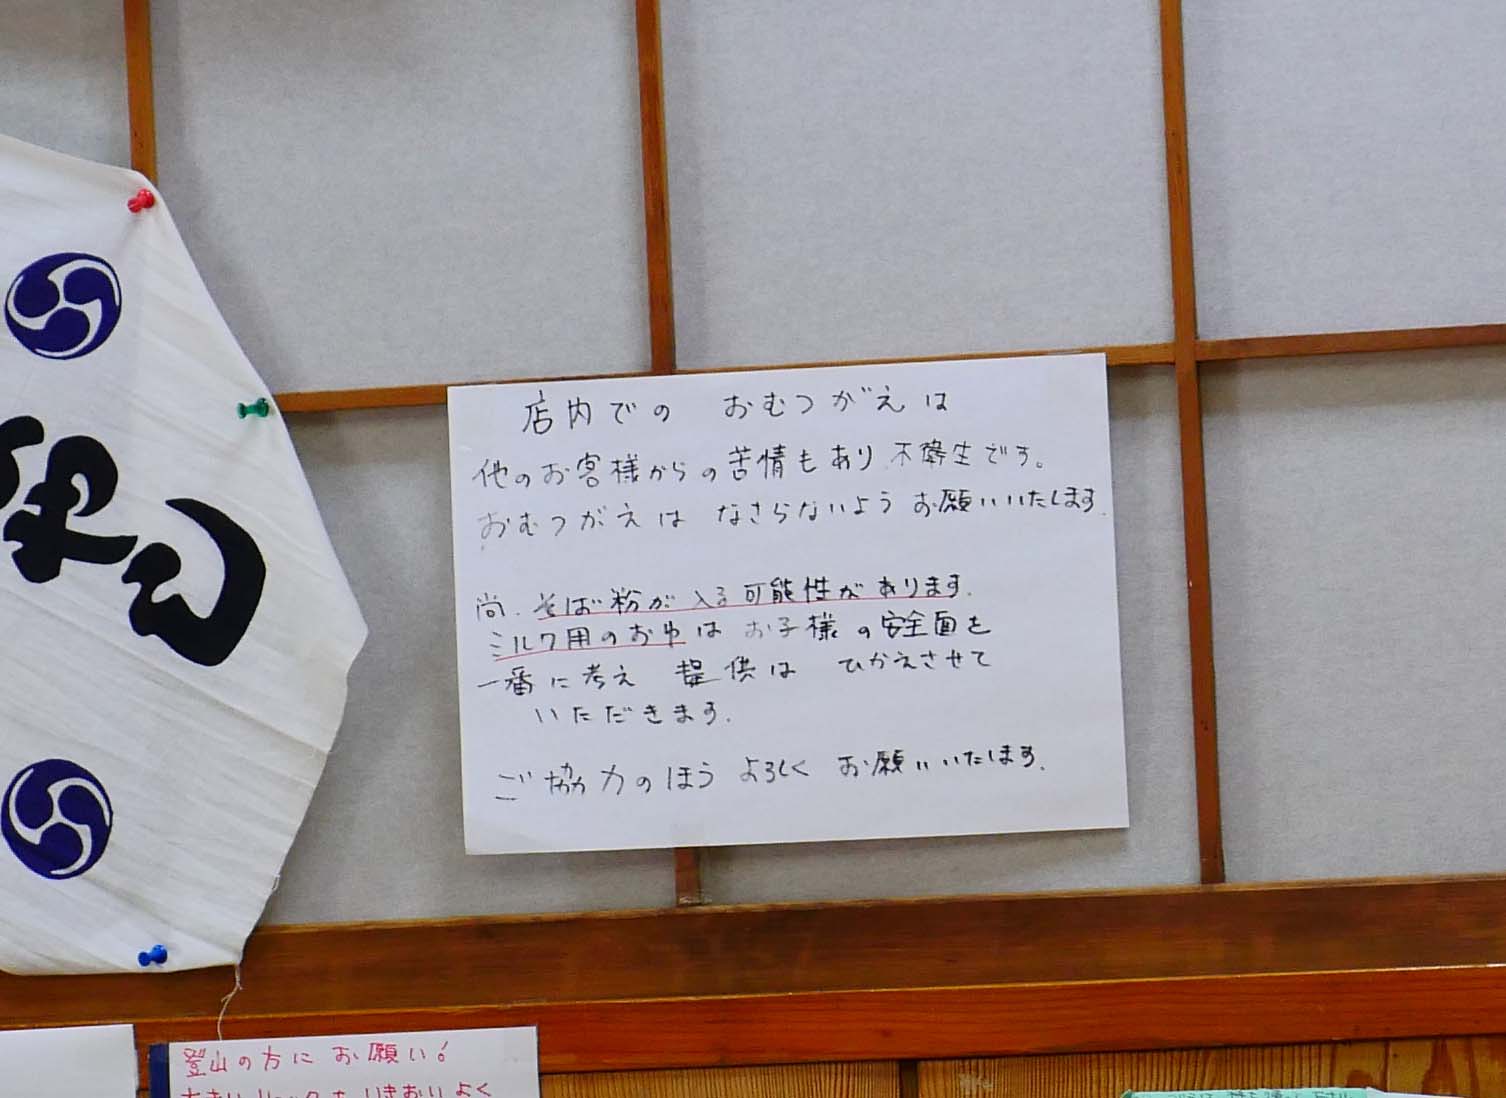 店内での おむつがえは
他のお客様からの苦情もあり 不衛生です。
おむつがえは なさらないよう お願いいたします.
尚、そば粉が入る可能性があります.
ミルク用のお湯は お子様の安全面を
一番に考え 提供は ひかえさせて
いただきます.
ご協力のほう よろしく お願いいたします.
登山の方に お願い!
いきおいよく